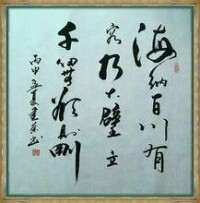 海纳百川有
容乃大壁立
千仞無欲则刚
丙申夏书